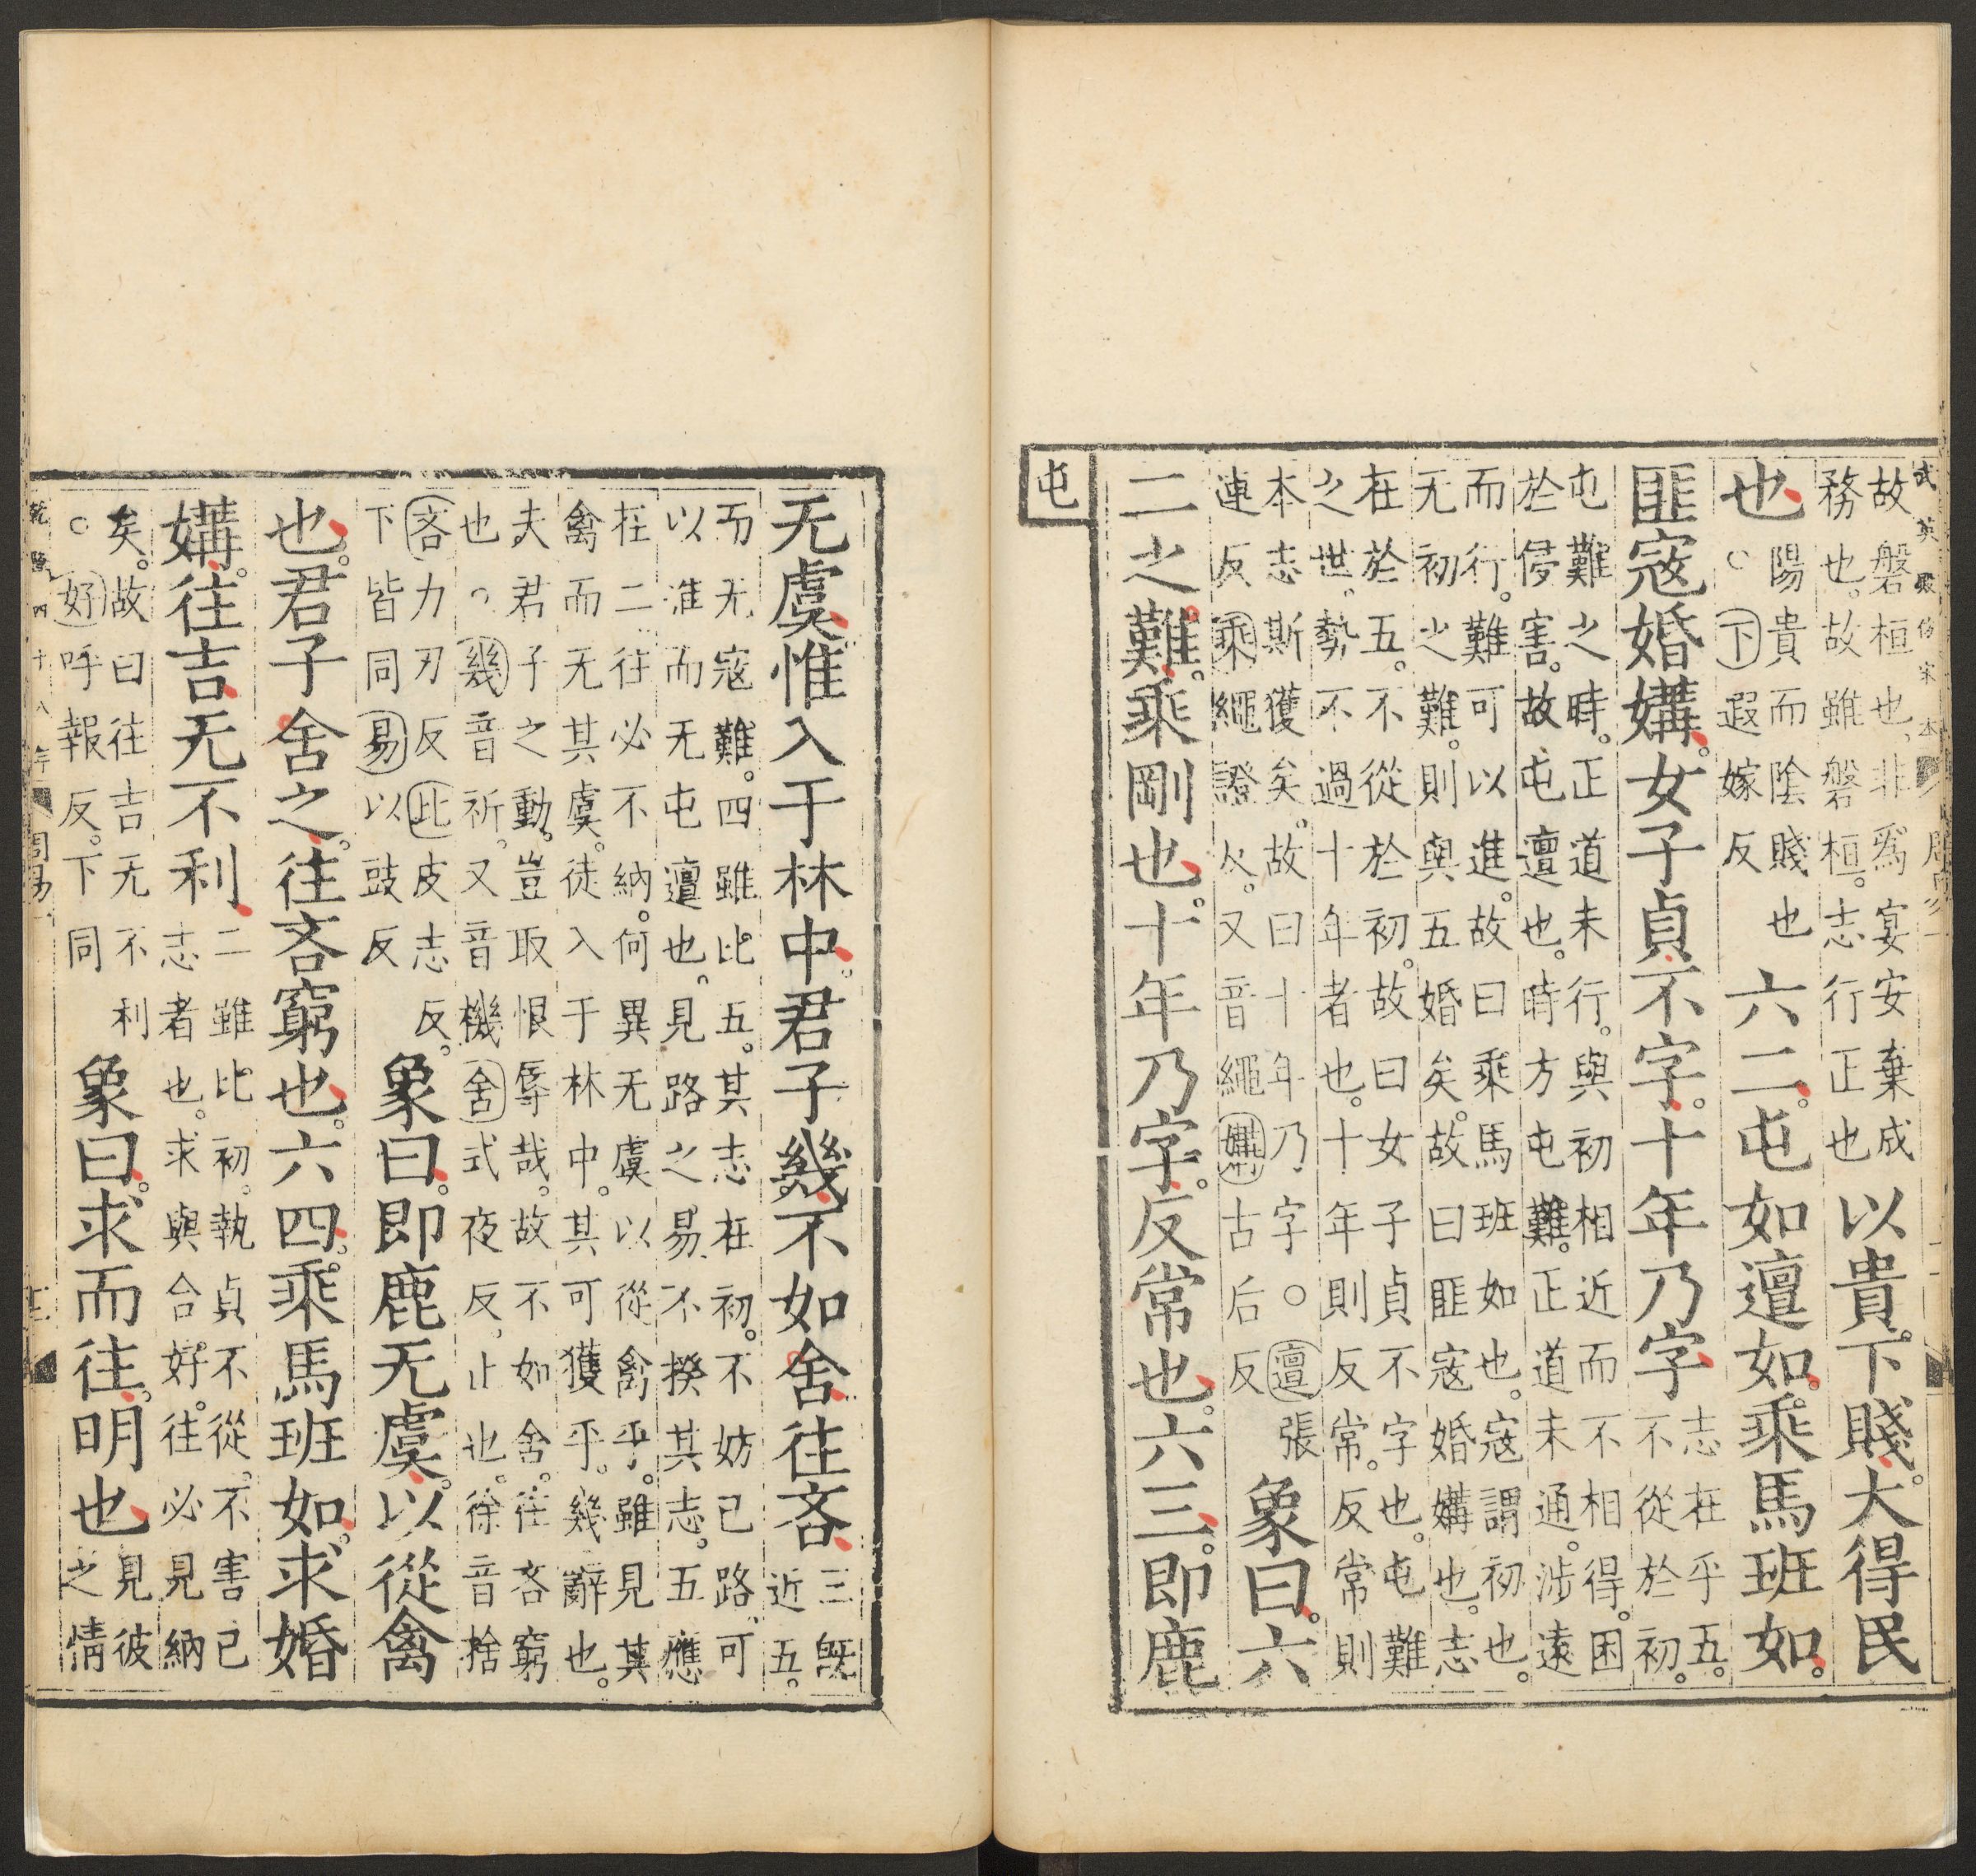 武英殿仿宋本
故磐桓也。非爲宴安棄成
務也。故雖磐桓。志行正也
以貴下賤。大得民
也
陽貴而陰賤也
○下遐嫁反
六二。屯如邅如。乘馬班如。
匪寇婚媾。女子貞不字。十年乃字
志在乎五。
不從於初。
屯難之時。正道未行。與初相近而不相得。困
於侵害。故屯邅也。時方屯難。正道未通。涉遠
而行。難可以進。故曰乘馬班如也。寇謂初也。
无初之難。則與五婚矣。故曰匪寇婚媾也。志
在於五。不從於初。故曰女子貞不字也。屯難
之世。勢不過十年者也。十年則反常。反常則
本志斯獲矣。故曰十年乃字。○邅張
連反乘繩證反。又音繩媾古后反
象曰。六
二之難。乘剛也。十年乃字。反常也。六三。即鹿
屯
无虞。惟入于林中。君子幾。不如舍。往吝
三既
近五。
而无寇難。四雖比五。其志在初。不妨已路。可
以准而无屯邅也。見路之易。不揆其志。五應
在二。往必不納。何異无虞以從禽乎。雖見其
禽而无其虞。徒入于林中。其可獲乎。幾辭也。
夫君子之動。豈取恨辱哉。故不如舍。往吝窮
也。○幾音祈。又音機舍式夜反。止也。徐音捨
吝力刃反此皮志反。
下皆同易以豉反
象曰。即鹿无虞。以從禽
也。君子舍之。往吝窮也。六四。乘馬班如。求婚
媾。往吉。无不利。
二雖比初。執貞不從。不害已
志者也。求與合好。往必見納
矣。故曰往吉无不利
○好呼報反。下同
象曰。求而往。明也
見彼
之情
乾隆四十八年
周易一
十二